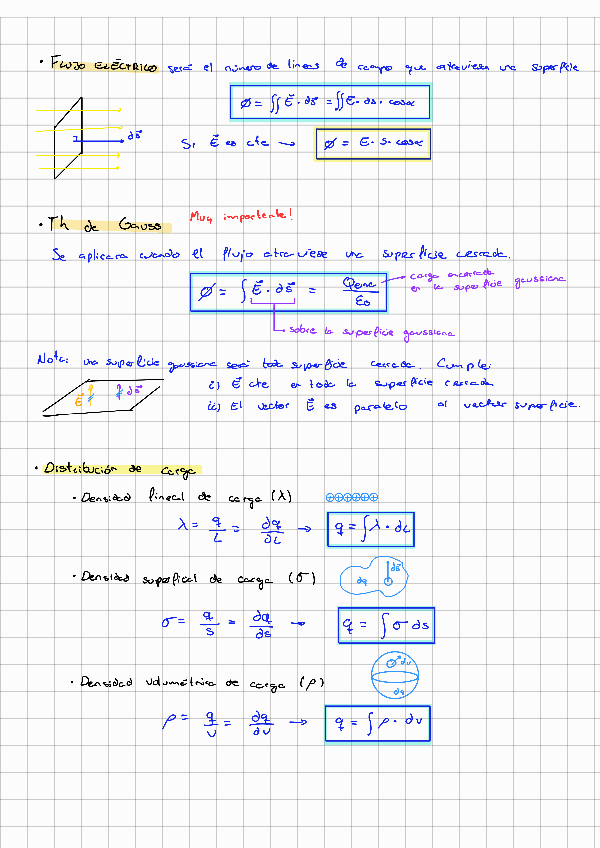 · FLUJO ELÉCTRICO será el número de lineas de campo que atraviesa una superficie
Ø = ∬ E⃗ · ds⃗ = ∬ E⃗ · ds · cosα
ds⃗
Si E⃗ es cte → Ø = E · S · cosα
· Th de Gauss Muy importante!
Se aplicara cuando el flujo atraviese una superficie cerrada.
Ø = ∫ E⃗ · ds⃗ = Qenc / ε₀
carga encerrada
en la superficie gaussiana
sobre la superficie gaussiana
Nota: una superficie gaussiana será toda superficie cerrada. Cumple:
i) E⃗ cte en toda la superficie cerrada
E⃗ ds⃗
ii) El vector E⃗ es paralelo al vector superficie.
· Distribución de carga
· Densidad lineal de carga (λ) ⊕⊕⊕⊕⊕⊕
λ = q/L = ∂q/∂L → q = ∫ λ · dL
· Densidad superficial de carga (σ)
dq ds⃗
σ = q/s = ∂q/∂s → q = ∫ σ ds
· Densidad volumétrica de carga (ρ)
dv
dq
ρ = q/v = ∂q/∂v → q = ∫ ρ · dv